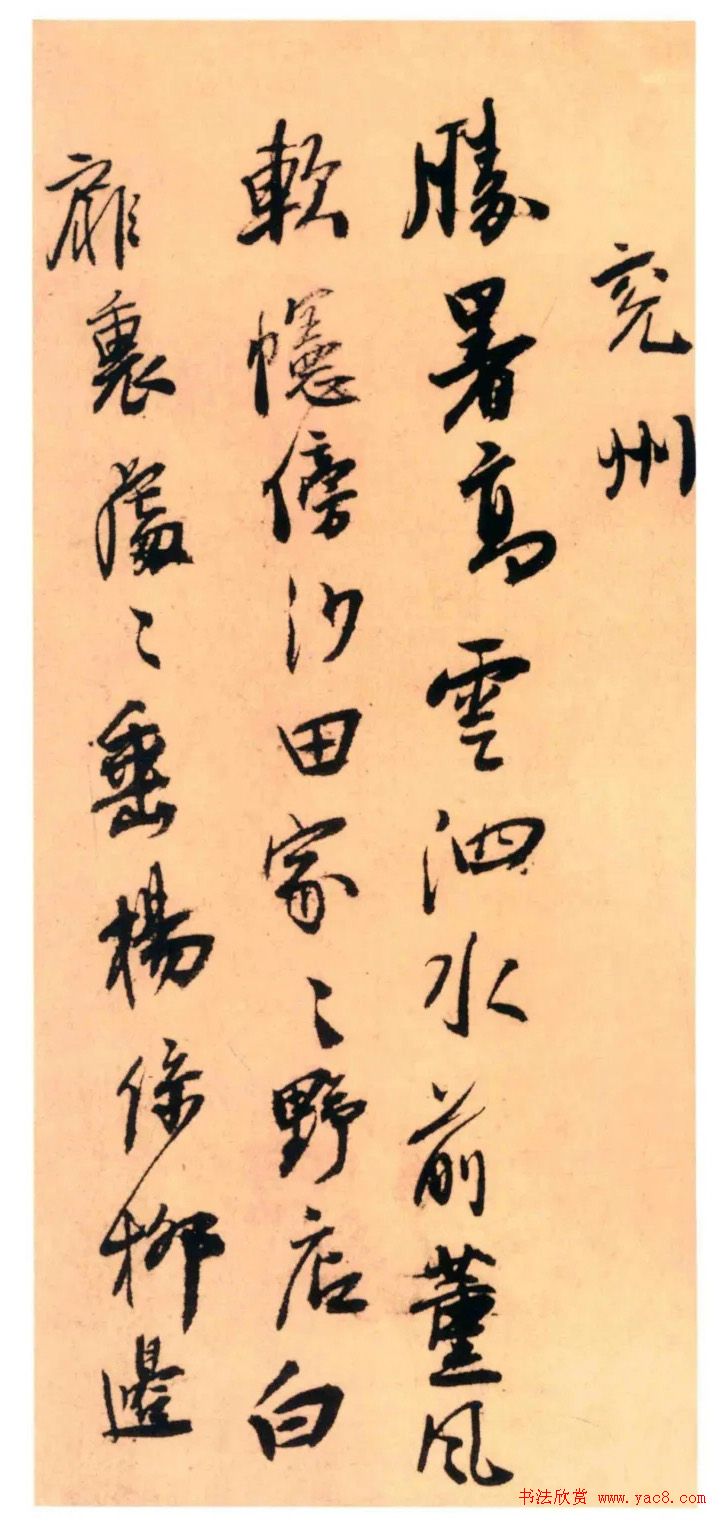 兖州
勝暑高雲泗水前董風
軟幰傍沙田家〻野店白
裏處〻垂楊條柳邊
书法欣赏 www.yac8.com